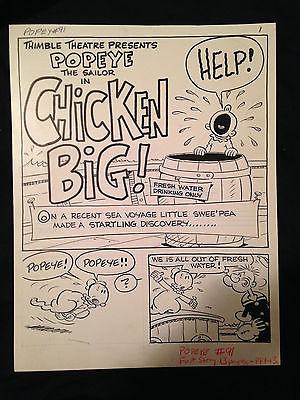 POPEYE #91
1
THIMBLE THEATRE PRESENTS
POPEYE
THE SAILOR
IN
CHICKEN
BIG!
HELP!
FRESH WATER
DRINKING ONLY
ON A RECENT SEA VOYAGE LITTLE SWEE'PEA
MADE A STARTLING DISCOVERY........
POPEYE!
POPEYE!!
?
WE IS ALL OUT OF FRESH
WATER!
POPEYE #91
First Story